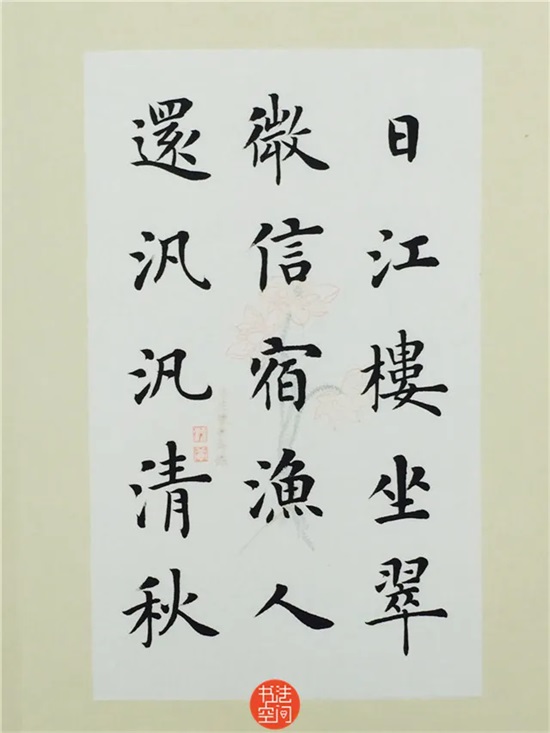 日江樓坐翠
微信宿漁人
還汎汎清秋
书法
空间